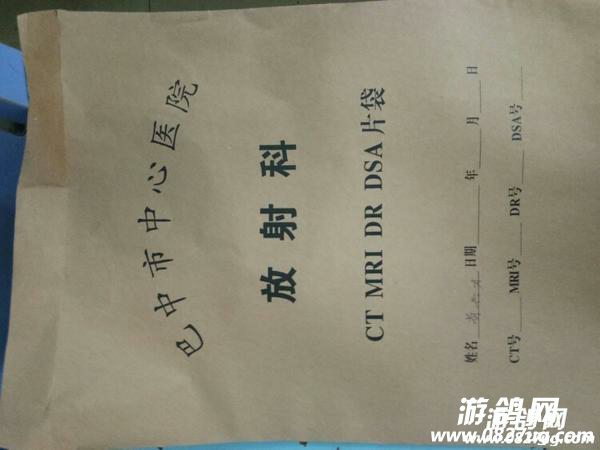 巴中市中心医院
放射科
CT MRI DR DSA 片袋
姓名 日期 年 月 日
CT号 MRI号 DR号 DSA号
游鸽网